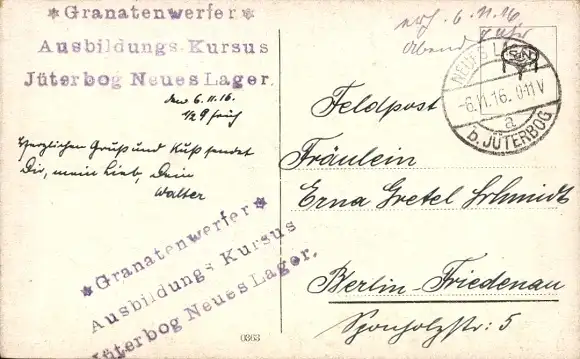 *Granatenwerfer*
Ausbildungs-Kursus
Jüterbog Neues Lager.
den 6.11.16.
1/2 9 früh
Herzlichen Gruß und Kuß sendet
Dir, mein Lieb, Dein
Walter
*Granatenwerfer*
Ausbildungs Kursus
Jüterbog Neues Lager.
0363
6.11.16
abend
NEUES
-6.11.16. 9-11 V
a
b. JÜTERBOG
Feldpost
Fräulein
Erna Gretel Schmidt
Berlin-Friedenau
Sponholzstr: 5